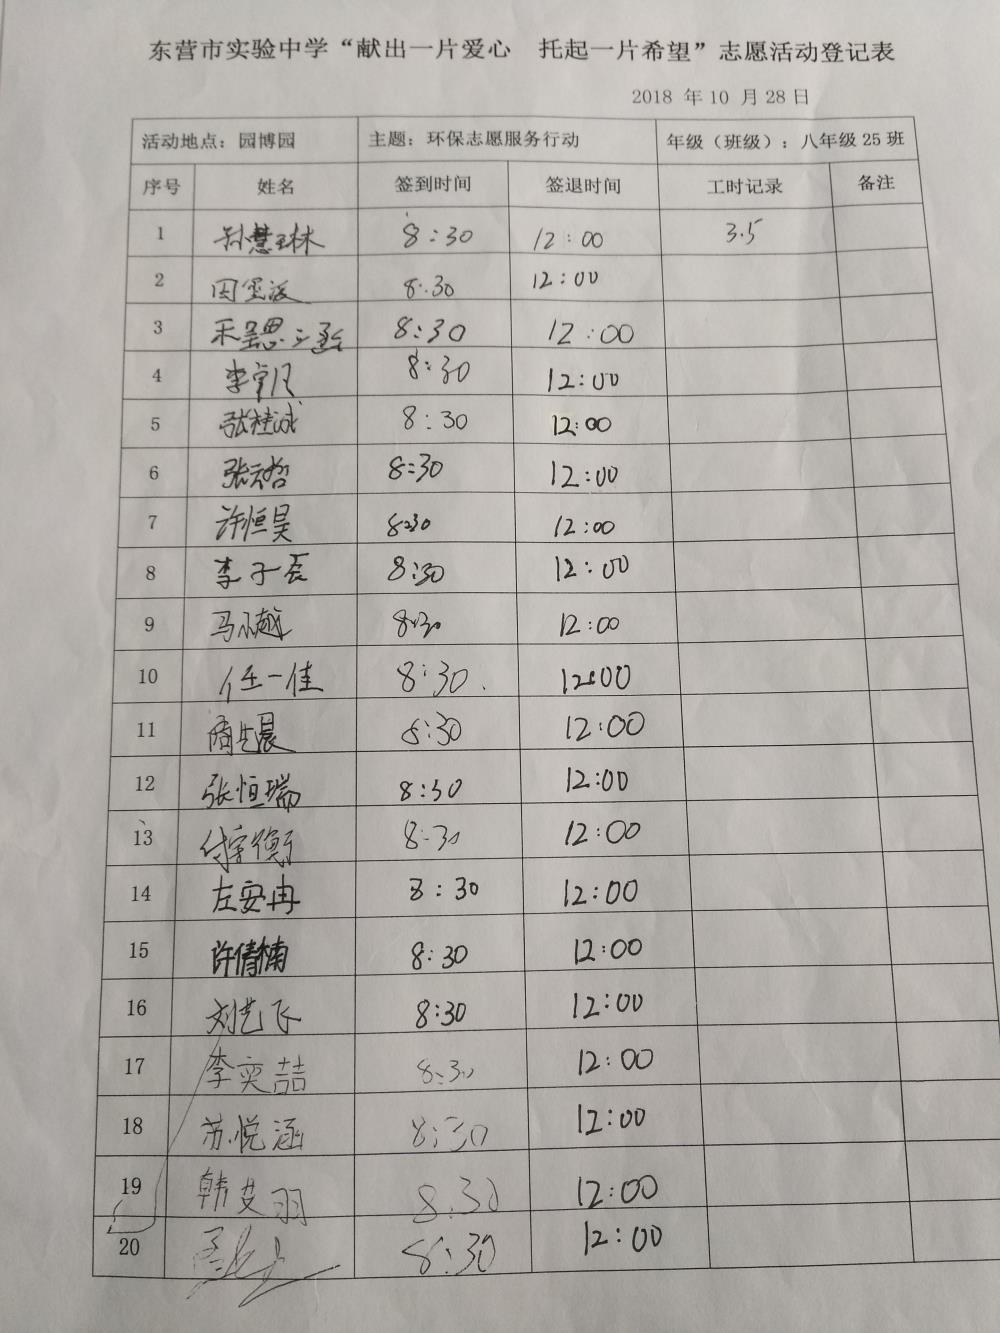 东营市实验中学“献出一片爱心 托起一片希望”志愿活动登记表
2018 年 10 月 28 日
活动地点：园博园 主题：环保志愿服务行动 年级（班级）：八年级 25 班
序号 姓名 签到时间 签退时间 工时记录 备注
1 孙慧琳 8:30 12:00 3.5
2 8:30 12:00
3 8:30 12:00
4 8:30 12:00
5 张桂诚 8:30 12:00
6 张云哲 8:30 12:00
7 许恒昊 8:30 12:00
8 李子辰 8:30 12:00
9 马小越 8:30 12:00
10 任一佳 8:30 12:00
11 8:30 12:00
12 张恒瑞 8:30 12:00
13 付宇衡 8:30 12:00
14 左安冉 8:30 12:00
15 许倩楠 8:30 12:00
16 刘艺飞 8:30 12:00
17 李奕喆 8:30 12:00
18 苏悦涵 8:30 12:00
19 韩艾羽 8:30 12:00
20 8:30 12:00